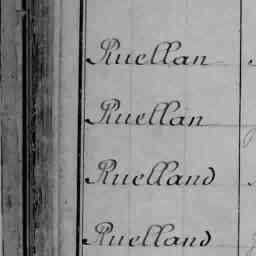 Ruellan
Ruellan
Ruelland
Ruelland